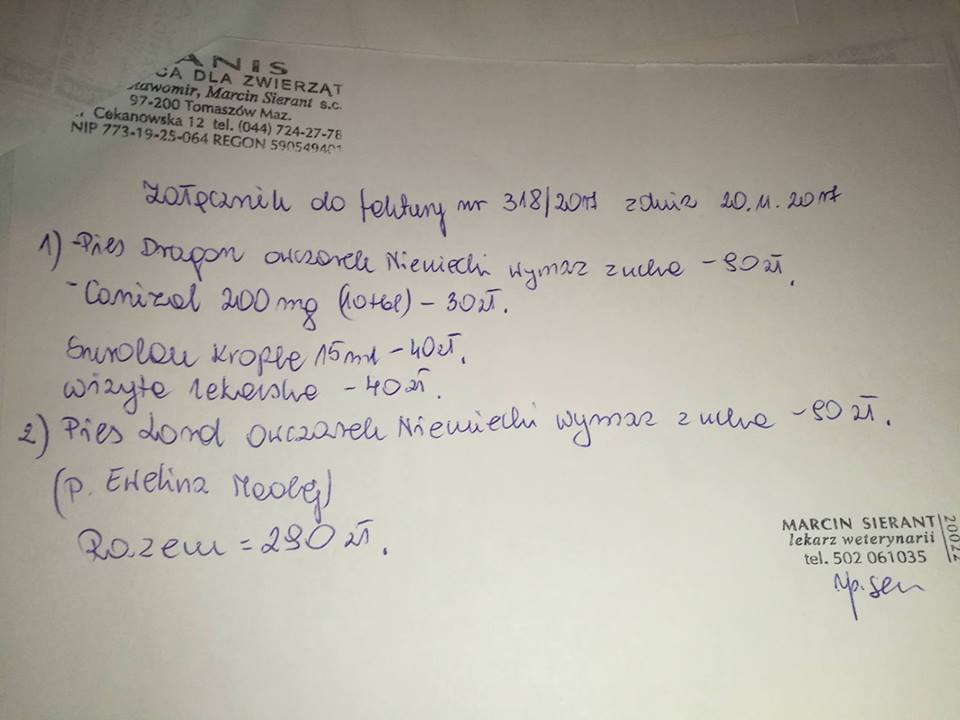 ANIS
CA DLA ZWIERZĄT
Sławomir, Marcin Sierant s.c.
97-200 Tomaszów Maz.
Cekanowska 12 tel. (044) 724-27-78
NIP 773-19-25-064 REGON 590549401
Załącznik do faktury nr 318/2017 z dnia 20.11.2017
1) - Pies Dragon owczarek Niemiecki wymaz z ucha - 90 zł.
- Canizol 200 mg (10 tbl) - 30 zł.
Surolan krople 15 ml - 40 zł.
wizyta lekarska - 40 zł.
2) Pies Lord owczarek Niemiecki wymaz z ucha - 90 zł.
(p. Ewelina
Razem = 290 zł.
MARCIN SIERANT
lekarz weterynarii
tel. 502 061035
20022